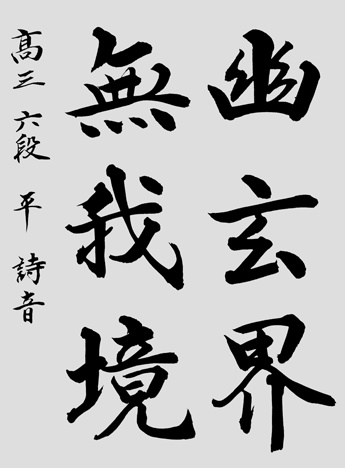 幽玄界
無我境
高三 六段 平 詩音